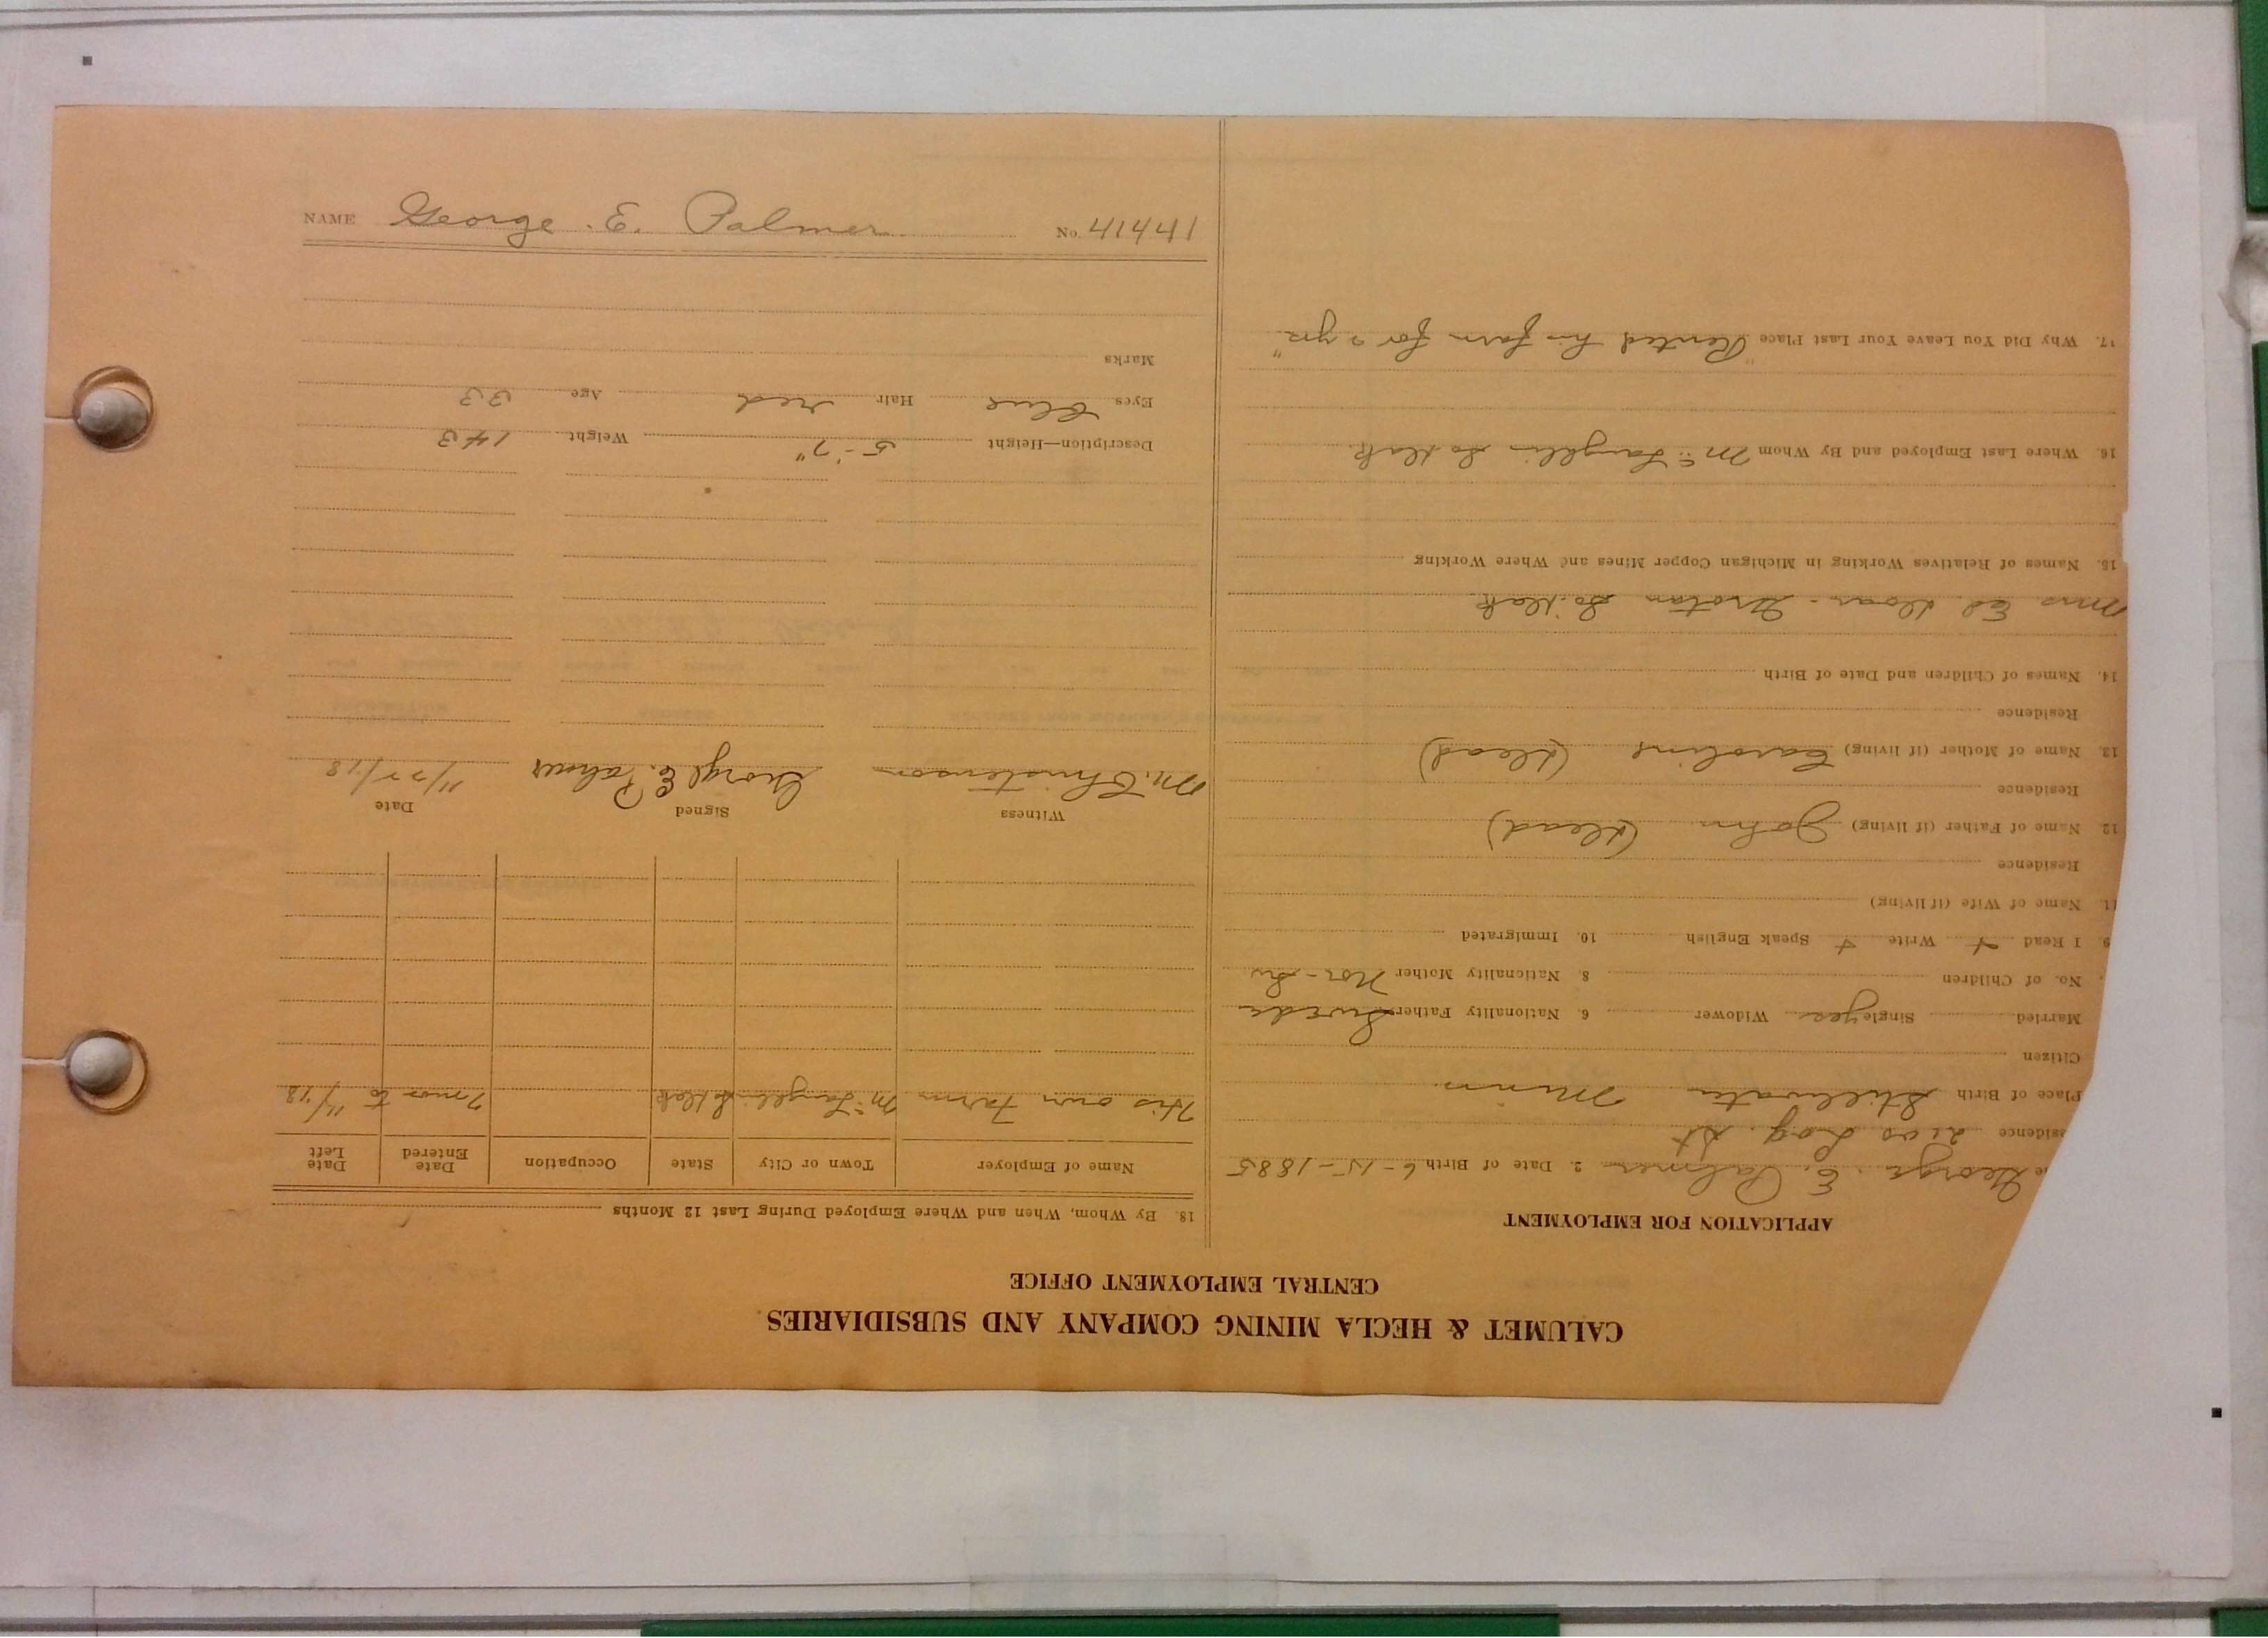 NAME George E. Palmer No. 41441
CALUMET & HECLA MINING COMPANY AND SUBSIDIARIES
CENTRAL EMPLOYMENT OFFICE
APPLICATION FOR EMPLOYMENT
George E. Palmer 2. Date of Birth 6-15-1885
Log. St
Place of Birth Stillwater Minn
Citizen
Married Single yes Widower 6. Nationality Father Swede
No. of Children 8. Nationality Mother Nor-Sw
9. I Read + Write + Speak English 10. Immigrated
11. Name of Wife (if living)
Residence
12. Name of Father (if living) John (Dead)
Residence
13. Name of Mother (if living) Caroline (Dead)
Residence
14. Names of Children and Date of Birth
Mrs Ed. So. Dak
15. Names of Relatives Working in Michigan Copper Mines and Where Working
16. Where Last Employed and By Whom McLaughlin So Dak.
17. Why Did You Leave Your Last Place "Rented his farm for 2 yrs"
18. By Whom, When and Where Employed During Last 12 Months
Name of Employer Town or City State Occupation Date Entered Date Left
His own Farm McLaughlin So Dak 7 mos to 11/18
Witness Signed Date
M. Christenson George E. Palmer 11/22/18
Description—Height 5-7" Weight 143
Eyes blue Hair red Age 33
Marks